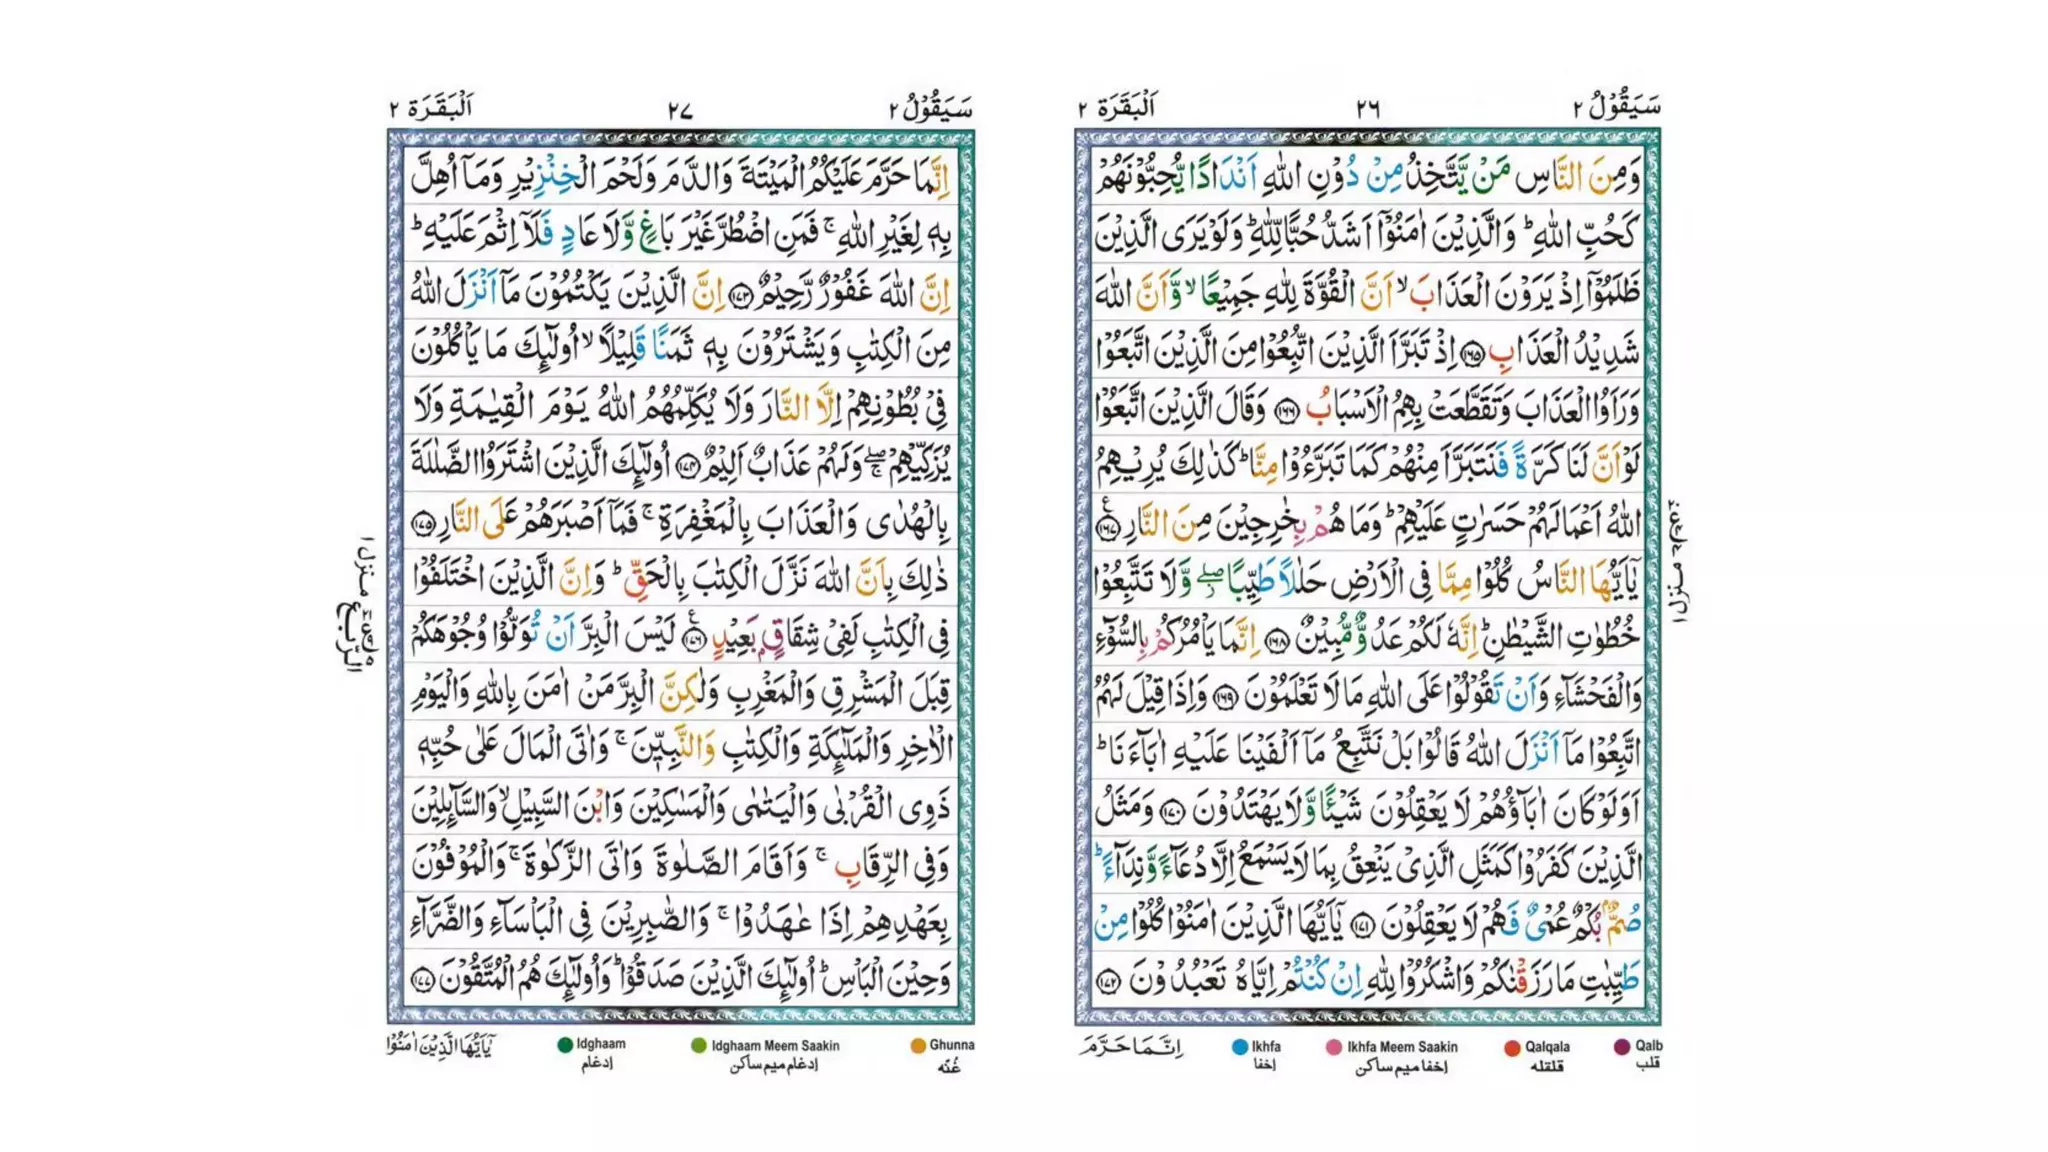 سَيَقُوْلُ ٢
٢٦
اَلْبَقَرَة ٢
وَمِنَ النَّاسِ مَنْ يَّتَّخِذُ مِنْ دُوْنِ اللّٰهِ اَنْدَادًا يُّحِبُّوْنَهُمْ
كَحُبِّ اللّٰهِ ؕ وَالَّذِيْنَ اٰمَنُوْۤا اَشَدُّ حُبًّا لِّلّٰهِ ؕ وَلَوْ يَرَى الَّذِيْنَ
ظَلَمُوْۤا اِذْ يَرَوْنَ الْعَذَابَ ۙ اَنَّ الْقُوَّةَ لِلّٰهِ جَمِيْعًا ۙ وَّاَنَّ اللّٰهَ
شَدِيْدُ الْعَذَابِ ﴿١٦٥﴾ اِذْ تَبَرَّاَ الَّذِيْنَ اتُّبِعُوْا مِنَ الَّذِيْنَ اتَّبَعُوْا
وَرَاَوُا الْعَذَابَ وَتَقَطَّعَتْ بِهِمُ الْاَسْبَابُ ﴿١٦٦﴾ وَقَالَ الَّذِيْنَ اتَّبَعُوْا
لَوْ اَنَّ لَنَا كَرَّةً فَنَتَبَرَّاَ مِنْهُمْ كَمَا تَبَرَّءُوْا مِنَّا ؕ كَذٰلِكَ يُرِيْهِمُ
اللّٰهُ اَعْمَالَهُمْ حَسَرٰتٍ عَلَيْهِمْ ؕ وَمَا هُمْ بِخٰرِجِيْنَ مِنَ النَّارِ ﴿١٦٧﴾
يٰۤاَيُّهَا النَّاسُ كُلُوْا مِمَّا فِى الْاَرْضِ حَلٰلًا طَيِّبًا ۖ وَّلَا تَتَّبِعُوْا
خُطُوٰتِ الشَّيْطٰنِ ؕ اِنَّهٗ لَكُمْ عَدُوٌّ مُّبِيْنٌ ﴿١٦٨﴾ اِنَّمَا يَاْمُرُكُمْ بِالسُّوْٓءِ
وَالْفَحْشَآءِ وَاَنْ تَقُوْلُوْا عَلَى اللّٰهِ مَا لَا تَعْلَمُوْنَ ﴿١٦٩﴾ وَاِذَا قِيْلَ لَهُمُ
اتَّبِعُوْا مَاۤ اَنْزَلَ اللّٰهُ قَالُوْا بَلْ نَتَّبِعُ مَاۤ اَلْفَيْنَا عَلَيْهِ اٰبَآءَنَا ؕ
اَوَلَوْ كَانَ اٰبَآؤُهُمْ لَا يَعْقِلُوْنَ شَيْـًٔا وَّلَا يَهْتَدُوْنَ ﴿١٧٠﴾ وَمَثَلُ
الَّذِيْنَ كَفَرُوْا كَمَثَلِ الَّذِىْ يَنْعِقُ بِمَا لَا يَسْمَعُ اِلَّا دُعَآءً وَّنِدَآءً ؕ
صُمٌّۢ بُكْمٌ عُمْىٌ فَهُمْ لَا يَعْقِلُوْنَ ﴿١٧١﴾ يٰۤاَيُّهَا الَّذِيْنَ اٰمَنُوْا كُلُوْا مِنْ
طَيِّبٰتِ مَا رَزَقْنٰكُمْ وَاشْكُرُوْا لِلّٰهِ اِنْ كُنْتُمْ اِيَّاهُ تَعْبُدُوْنَ ﴿١٧٢﴾
منزل ١
اِنَّمَا حَرَّمَ
Ikhfa
Ikhfa Meem Saakin
Qalqala
Qalb
اخفا
اخفا میم ساکن
قلقلہ
قلب
سَيَقُوْلُ ٢
٢٧
اَلْبَقَرَة ٢
اِنَّمَا حَرَّمَ عَلَيْكُمُ الْمَيْتَةَ وَالدَّمَ وَلَحْمَ الْخِنْزِيْرِ وَمَاۤ اُهِلَّ
بِهٖ لِغَيْرِ اللّٰهِ ۚ فَمَنِ اضْطُرَّ غَيْرَ بَاغٍ وَّلَا عَادٍ فَلَاۤ اِثْمَ عَلَيْهِ ؕ
اِنَّ اللّٰهَ غَفُوْرٌ رَّحِيْمٌ ﴿١٧٣﴾ اِنَّ الَّذِيْنَ يَكْتُمُوْنَ مَاۤ اَنْزَلَ اللّٰهُ
مِنَ الْكِتٰبِ وَيَشْتَرُوْنَ بِهٖ ثَمَنًا قَلِيْلًا ۙ اُولٰٓئِكَ مَا يَاْكُلُوْنَ
فِىْ بُطُوْنِهِمْ اِلَّا النَّارَ وَلَا يُكَلِّمُهُمُ اللّٰهُ يَوْمَ الْقِيٰمَةِ وَلَا
يُزَكِّيْهِمْ ۖۚ وَلَهُمْ عَذَابٌ اَلِيْمٌ ﴿١٧٤﴾ اُولٰٓئِكَ الَّذِيْنَ اشْتَرَوُا الضَّلٰلَةَ
بِالْهُدٰى وَالْعَذَابَ بِالْمَغْفِرَةِ ۚ فَمَاۤ اَصْبَرَهُمْ عَلَى النَّارِ ﴿١٧٥﴾
ذٰلِكَ بِاَنَّ اللّٰهَ نَزَّلَ الْكِتٰبَ بِالْحَقِّ ؕ وَاِنَّ الَّذِيْنَ اخْتَلَفُوْا
فِى الْكِتٰبِ لَفِىْ شِقَاقٍۢ بَعِيْدٍ ﴿١٧٦﴾ لَيْسَ الْبِرَّ اَنْ تُوَلُّوْا وُجُوْهَكُمْ
قِبَلَ الْمَشْرِقِ وَالْمَغْرِبِ وَلٰكِنَّ الْبِرَّ مَنْ اٰمَنَ بِاللّٰهِ وَالْيَوْمِ
الْاٰخِرِ وَالْمَلٰٓئِكَةِ وَالْكِتٰبِ وَالنَّبِيّٖنَ ۚ وَاٰتَى الْمَالَ عَلٰى حُبِّهٖ
ذَوِى الْقُرْبٰى وَالْيَتٰمٰى وَالْمَسٰكِيْنَ وَابْنَ السَّبِيْلِ ۙ وَالسَّآئِلِيْنَ
وَفِى الرِّقَابِ ۚ وَاَقَامَ الصَّلٰوةَ وَاٰتَى الزَّكٰوةَ ۚ وَالْمُوْفُوْنَ
بِعَهْدِهِمْ اِذَا عٰهَدُوْا ۚ وَالصّٰبِرِيْنَ فِى الْبَاْسَآءِ وَالضَّرَّآءِ
وَحِيْنَ الْبَاْسِ ؕ اُولٰٓئِكَ الَّذِيْنَ صَدَقُوْا ؕ وَاُولٰٓئِكَ هُمُ الْمُتَّقُوْنَ ﴿١٧٧﴾
منزل ١
الرُّبع
يٰۤاَيُّهَا الَّذِيْنَ اٰمَنُوْا
Idghaam
Idghaam Meem Saakin
Ghunna
ادغام
ادغام میم ساکن
غُنّہ